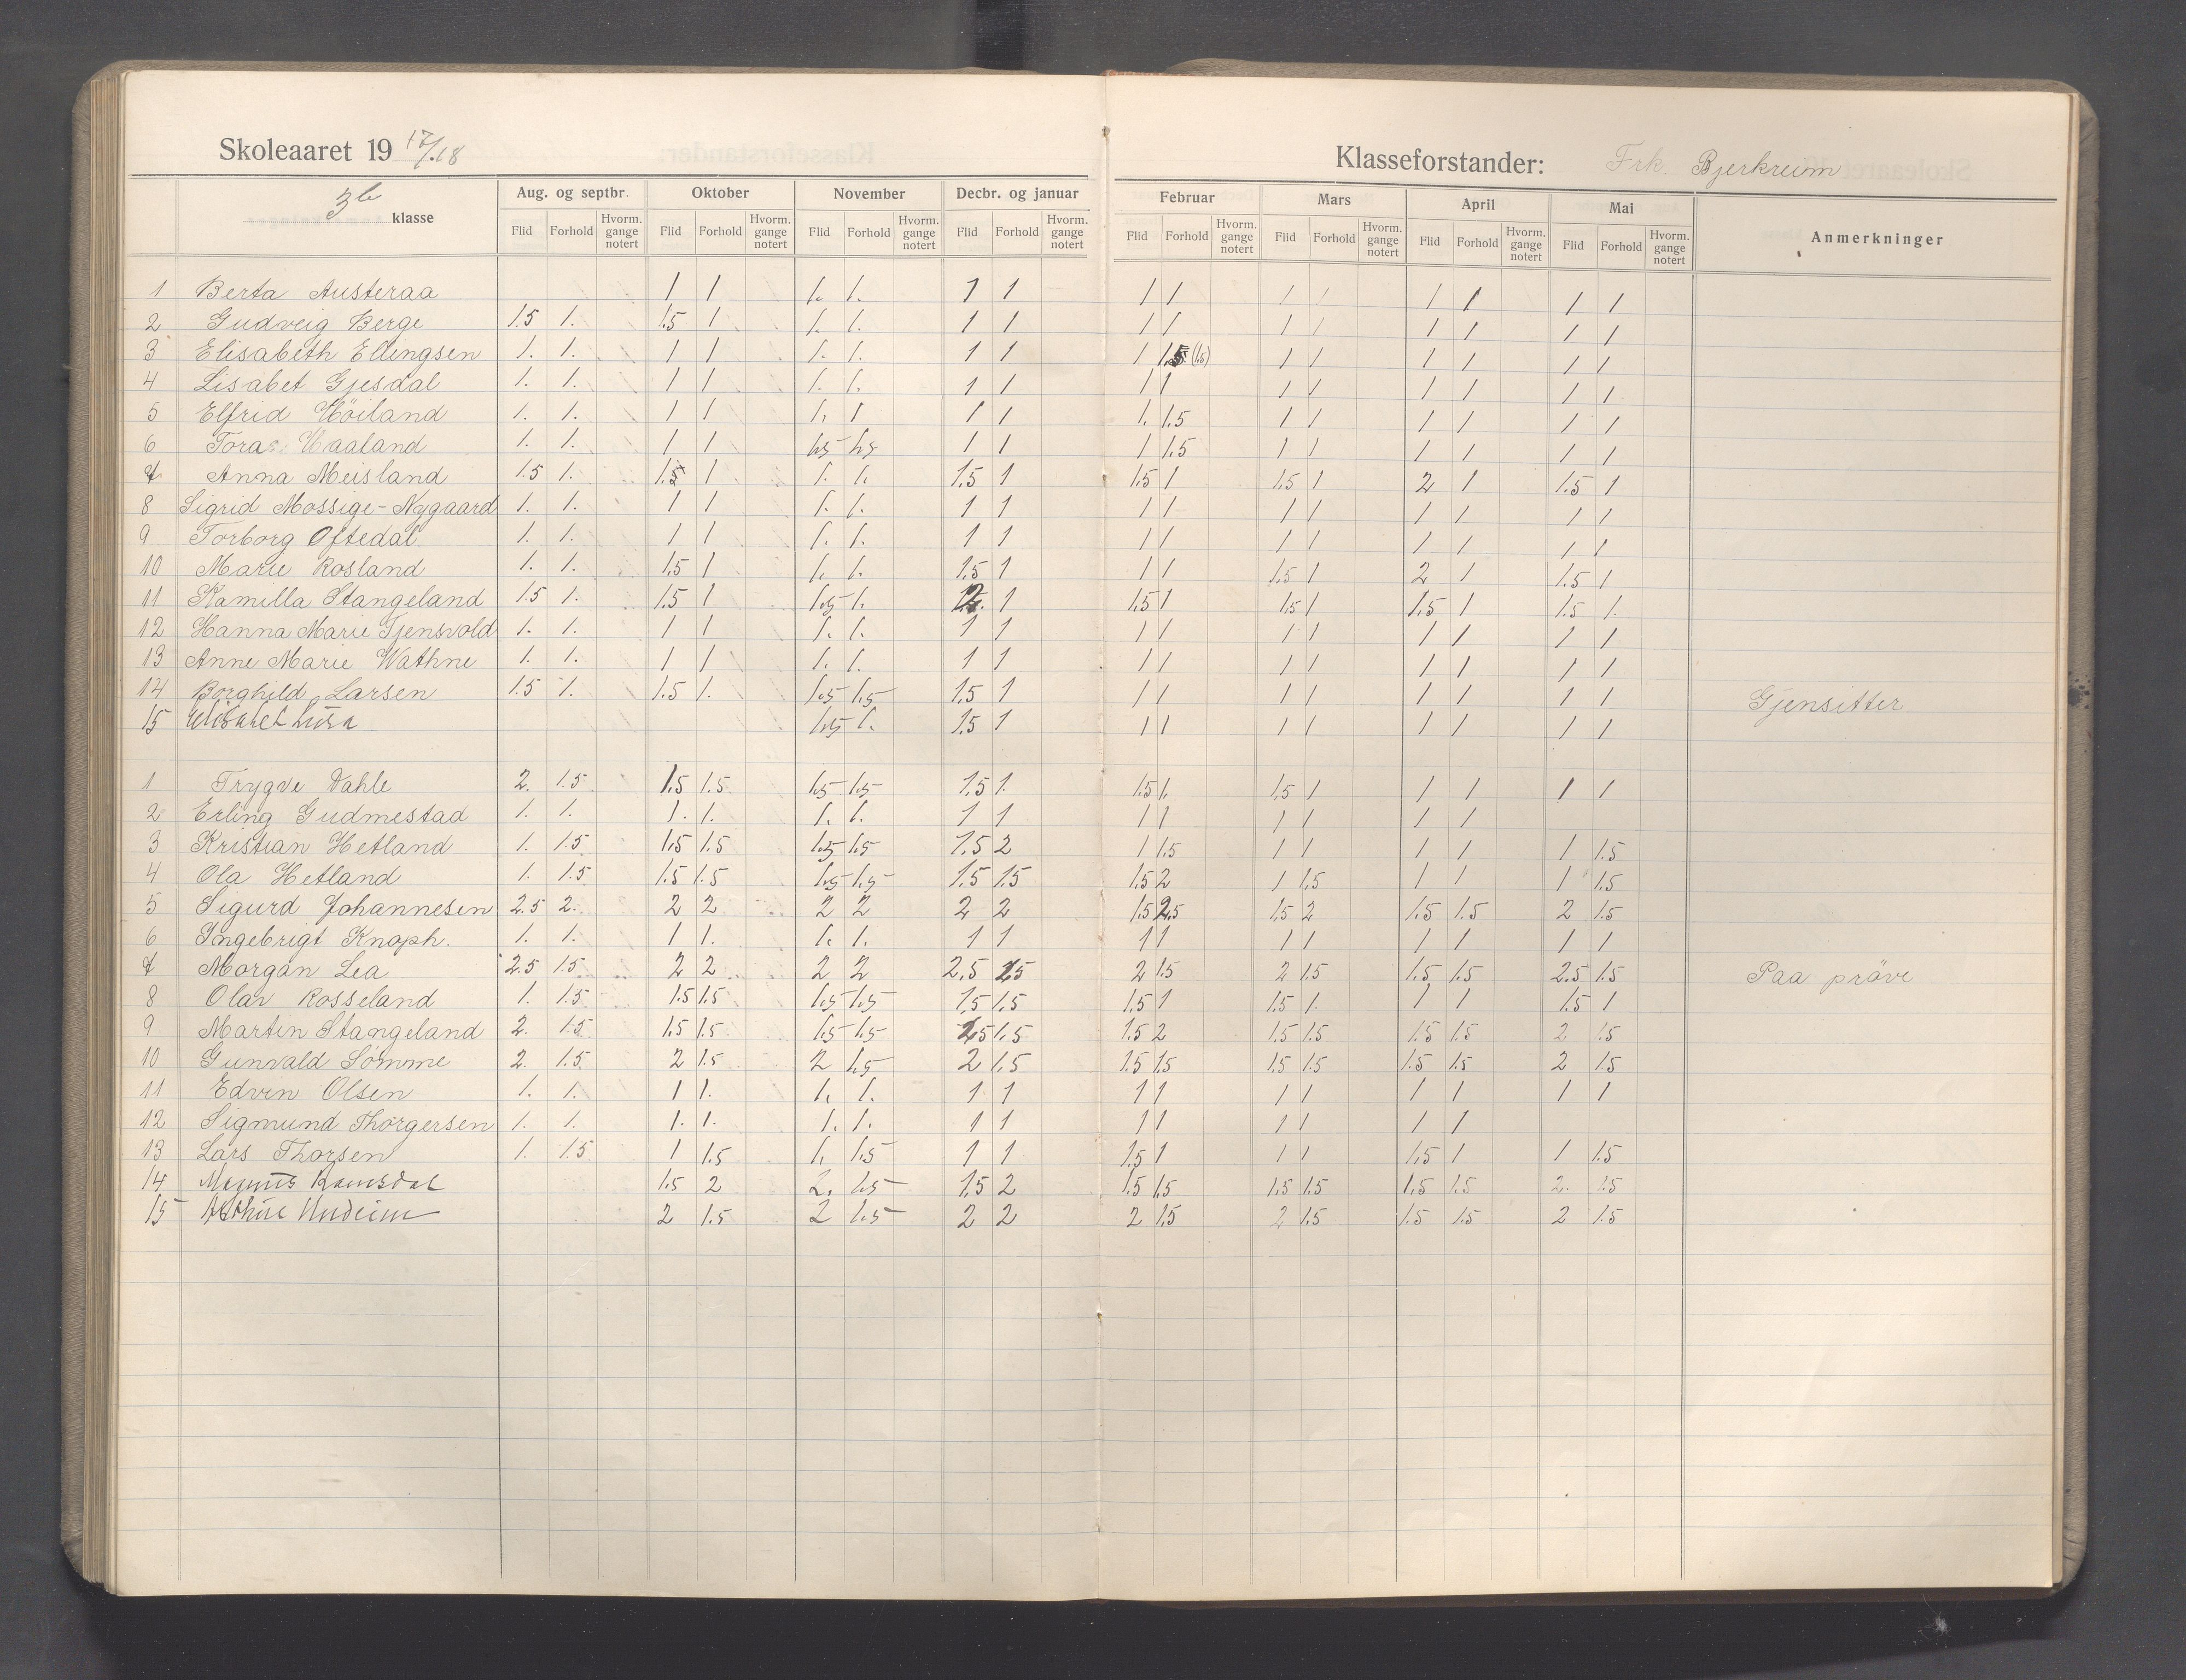 Skoleaaret 1917/18
Klasseforstander: Frk. Bjerkreim
3b klasse | Aug. og septbr. | Oktober | November | Decbr. og januar | Februar | Mars | April | Mai | Anmerkninger
Flid Forhold Hvorm. gange notert | Flid Forhold Hvorm. gange notert | Flid Forhold Hvorm. gange notert | Flid Forhold Hvorm. gange notert | Flid Forhold Hvorm. gange notert | Flid Forhold Hvorm. gange notert | Flid Forhold Hvorm. gange notert | Flid Forhold Hvorm. gange notert
1 Berta Austeraa | | 1 1 | 1. 1. | 1 1 | 1 1 | 1 1 | 1 1 | 1 1
2 Gudveig Berge | 1.5 1. | 1.5 1 | 1. 1. | 1 1 | 1 1 | 1 1 | 1 1 | 1 1
3 Elisabeth Ellingsen | 1. 1. | 1 1 | 1. 1. | 1 1 | 1 1.5 (1.5) | 1 1 | 1 1 | 1 1
4 Lisabet Gjesdal | 1. 1. | 1 1 | 1. 1. | 1 1 | 1 1 | 1 1 | 1 1 | 1 1
5 Elfrid Höiland | 1. 1. | 1 1 | 1. 1 | 1 1 | 1. 1.5 | 1 1 | 1 1 | 1 1
6 Tora Haaland | 1. 1. | 1 1 | 1.5 1.5 | 1 1 | 1 1.5 | 1 1 | 1 1 | 1 1
7 Anna Meisland | 1.5 1. | 1.5 1 | 1. 1. | 1.5 1 | 1.5 1 | 1.5 1 | 2 1 | 1.5 1
8 Sigrid Mossige-Nygaard | 1. 1. | 1 1 | 1. 1. | 1 1 | 1 1 | 1 1 | 1 1 | 1 1
9 Torborg Oftedal | 1. 1. | 1 1 | 1. 1. | 1 1 | 1 1 | 1 1 | 1 1 | 1 1
10 Marie Rosland | 1. 1. | 1.5 1 | 1. 1. | 1.5 1 | 1 1 | 1.5 1 | 2 1 | 1.5 1
11 Kamilla Stangeland | 1.5 1. | 1.5 1 | 1.5 1. | 2. 1 | 1.5 1 | 1.5 1 | 1.5 1 | 1.5 1.
12 Hanna Marie Tjensvold | 1. 1. | 1 1 | 1. 1. | 1 1 | 1 1 | 1 1 | 1 1 | 1 1
13 Anne Marie Wathne | 1. 1. | 1 1 | 1. 1. | 1 1 | 1 1 | 1 1 | 1 1 | 1 1
14 Borghild Larsen | 1.5 1. | 1.5 1. | 1.5 1.5 | 1.5 1 | 1 1 | 1 1 | 1 1 | 1 1 | Gjensitter
15 Elisabet Lura | | | 1.5 1. | 1.5 1 | 1 1 | 1 1 | 1 1 | 1 1
1 Trygve Dahle | 2. 1.5 | 1.5 1.5 | 1.5 1.5 | 1.5 1. | 1.5 1. | 1.5 1 | 1 1 | 1 1
2 Erling Gudmestad | 1. 1. | 1. 1. | 1. 1. | 1 1 | 1 1 | 1 1 | 1 1
3 Kristian Hetland | 1. 1.5 | 1.5 1.5 | 1.5 1.5 | 1.5 2 | 1 1.5 | 1 1 | 1 1 | 1 1.5
4 Ola Hetland | 1. 1.5 | 1.5 1.5 | 1.5 1.5 | 1.5 1.5 | 1.5 2 | 1 1.5 | 1 1 | 1 1.5
5 Sigurd Johannesen | 2.5 2. | 2 2 | 2 2 | 2 2 | 1.5 2.5 | 1.5 2 | 1.5 1.5 | 2 1.5
6 Ingebrigt Knoph. | 1. 1. | 1 1. | 1. 1. | 1 1 | 1 1 | 1 1 | 1 1 | 1 1
7 Morgan Lea | 2.5 1.5 | 2 2 | 2 2 | 2.5 2.5 | 2 1.5 | 2 1.5 | 1.5 1.5 | 2.5 1.5 | Paa pröve
8 Olav Rosseland | 1. 1.5 | 1.5 1.5 | 1.5 1.5 | 1.5 1.5 | 1.5 1 | 1.5 1. | 1 1 | 1.5 1
9 Martin Stangeland | 2. 1.5 | 1.5 1.5 | 1.5 1.5 | 2.5 1.5 | 1.5 2 | 1.5 1.5 | 1.5 1.5 | 2 1.5
10 Gunvald Sömme | 2. 1.5 | 2 1.5 | 2 1.5 | 2 1.5 | 1.5 1.5 | 1.5 1.5 | 1.5 1.5 | 2 1.5
11 Edvin Olsen | 1. 1. | 1 1. | 1. 1. | 1 1 | 1 1 | 1 1 | 1 1 | 1 1
12 Sigmund Thorgersen | 1. 1. | 1. 1. | 1. 1. | 1 1 | 1 1 | 1 1 | 1 1
13 Lars Thorsen | 1. 1.5 | 1 1.5 | 1. 1.5 | 1 1 | 1.5 1 | 1 1 | 1.5 1 | 1 1.5
14 Magnus Ramsdal | | 1.5 2 | 2. 1.5 | 1.5 2 | 1.5 1.5 | 1.5 1.5 | 1.5 1.5 | 2. 1.5
15 Undeim | | 2 1.5 | 2 1.5 | 2 2 | 2 1.5 | 2 1.5 | 1.5 1.5 | 2 1.5